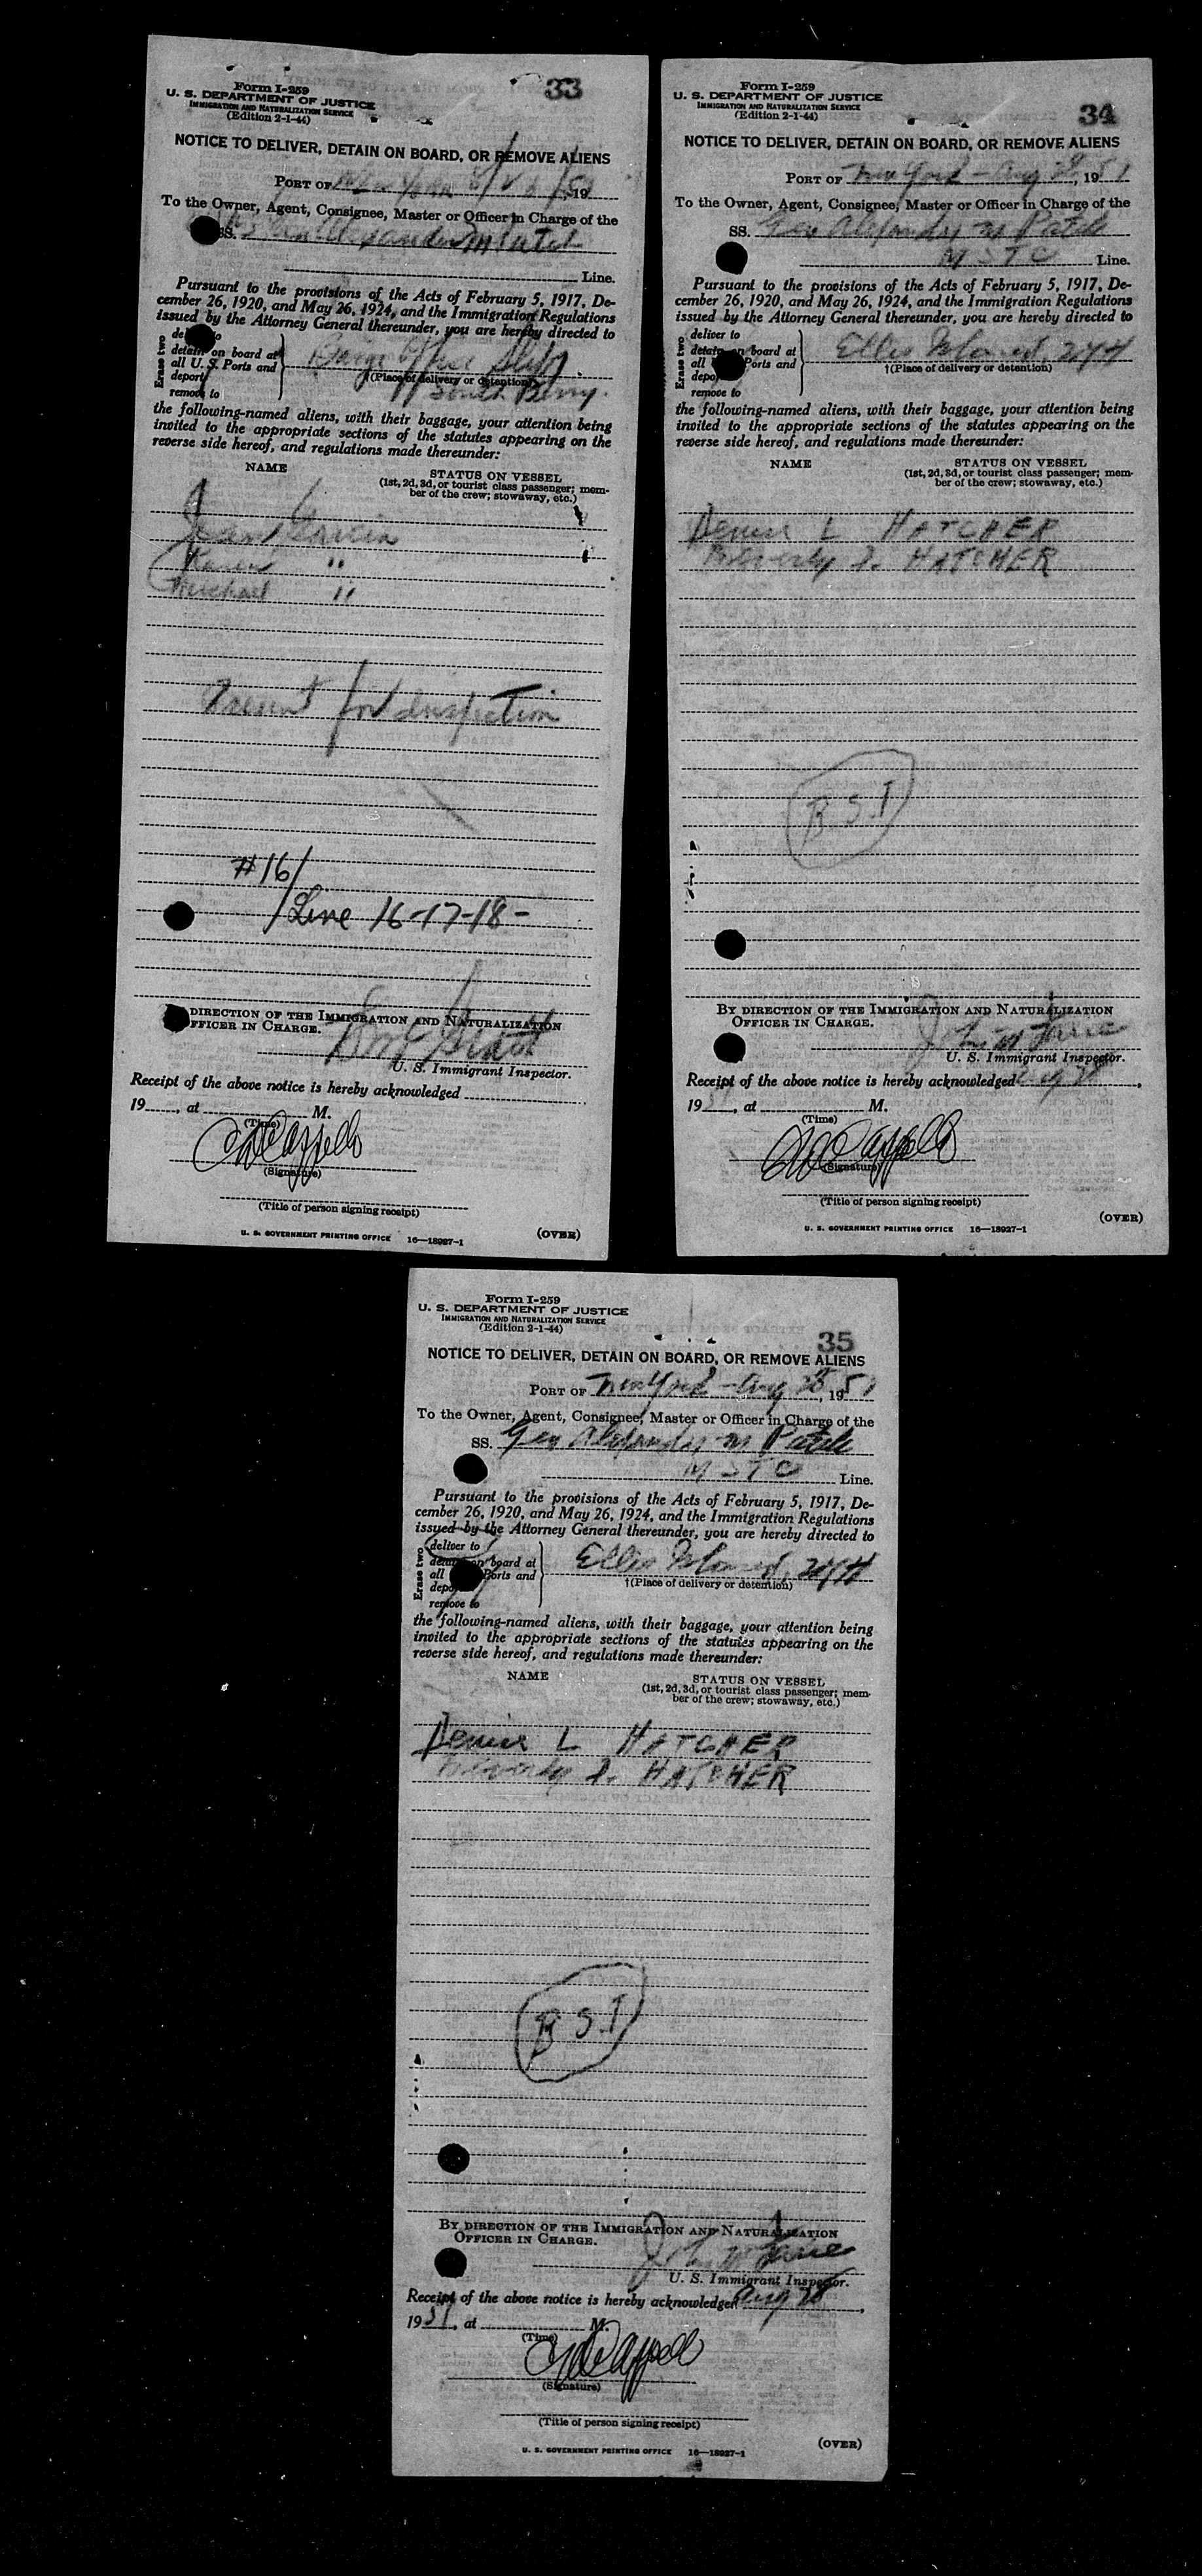 33
Form I-259
U. S. DEPARTMENT OF JUSTICE
IMMIGRATION AND NATURALIZATION SERVICE
(Edition 2-1-44)
NOTICE TO DELIVER, DETAIN ON BOARD, OR REMOVE ALIENS
PORT OF New York 19
To the Owner, Agent, Consignee, Master or Officer in Charge of the
SS.
Line.
Pursuant to the provisions of the Acts of February 5, 1917, De-
cember 26, 1920, and May 26, 1924, and the Immigration Regulations
issued by the Attorney General thereunder, you are hereby directed to
Erase two
detain on board at
all U. S. Ports and
deport
remove to
Barge Office Slip
†(Place of delivery or detention)
South Ferry.
the following-named aliens, with their baggage, your attention being
invited to the appropriate sections of the statutes appearing on the
reverse side hereof, and regulations made thereunder:
NAME STATUS ON VESSEL
(1st, 2d, 3d, or tourist class passenger; mem-
ber of the crew; stowaway, etc.)
Karin "
Michael "
Present for inspection
#16/
Line 16-17-18-
DIRECTION OF THE IMMIGRATION AND NATURALIZATION
OFFICER IN CHARGE.
U. S. Immigrant Inspector.
Receipt of the above notice is hereby acknowledged
19 , at M.
(Time)
(Signature)
(Title of person signing receipt)
U. S. GOVERNMENT PRINTING OFFICE 16—18927-1
(OVER)
34
Form I-259
U. S. DEPARTMENT OF JUSTICE
IMMIGRATION AND NATURALIZATION SERVICE
(Edition 2-1-44)
NOTICE TO DELIVER, DETAIN ON BOARD, OR REMOVE ALIENS
PORT OF New York - Aug 28, 1951
To the Owner, Agent, Consignee, Master or Officer in Charge of the
SS. Gen Alexander M Patch
MSTC Line.
Pursuant to the provisions of the Acts of February 5, 1917, De-
cember 26, 1920, and May 26, 1924, and the Immigration Regulations
issued by the Attorney General thereunder, you are hereby directed to
Erase two
deliver to
detain on board at
all Ports and
remove to
Ellis Island, NYH
†(Place of delivery or detention)
the following-named aliens, with their baggage, your attention being
invited to the appropriate sections of the statutes appearing on the
reverse side hereof, and regulations made thereunder:
NAME STATUS ON VESSEL
(1st, 2d, 3d, or tourist class passenger; mem-
ber of the crew; stowaway, etc.)
Dennis L HATCHER
Beverly J. HATCHER
B.S.I
BY DIRECTION OF THE IMMIGRATION AND NATURALIZATION
OFFICER IN CHARGE.
U. S. Immigrant Inspector.
Receipt of the above notice is hereby acknowledged Aug 28,
1951, at M.
(Time)
(Signature)
(Title of person signing receipt)
U. S. GOVERNMENT PRINTING OFFICE 16—18927-1
(OVER)
35
Form I-259
U. S. DEPARTMENT OF JUSTICE
IMMIGRATION AND NATURALIZATION SERVICE
(Edition 2-1-44)
NOTICE TO DELIVER, DETAIN ON BOARD, OR REMOVE ALIENS
PORT OF New York - Aug 28, 1951
To the Owner, Agent, Consignee, Master or Officer in Charge of the
SS. Gen Alexander M Patch
MSTC Line.
Pursuant to the provisions of the Acts of February 5, 1917, De-
cember 26, 1920, and May 26, 1924, and the Immigration Regulations
issued by the Attorney General thereunder, you are hereby directed to
Erase two
deliver to
detain on board at
all Ports and
remove to
Ellis Island, NYH
†(Place of delivery or detention)
the following-named aliens, with their baggage, your attention being
invited to the appropriate sections of the statutes appearing on the
reverse side hereof, and regulations made thereunder:
NAME STATUS ON VESSEL
(1st, 2d, 3d, or tourist class passenger; mem-
ber of the crew; stowaway, etc.)
Dennis L HATCHER
Beverly J. HATCHER
B.S.I
BY DIRECTION OF THE IMMIGRATION AND NATURALIZATION
OFFICER IN CHARGE.
U. S. Immigrant Inspector.
Receipt of the above notice is hereby acknowledged Aug 28,
1951, at M.
(Time)
(Signature)
(Title of person signing receipt)
U. S. GOVERNMENT PRINTING OFFICE 16—18927-1
(OVER)